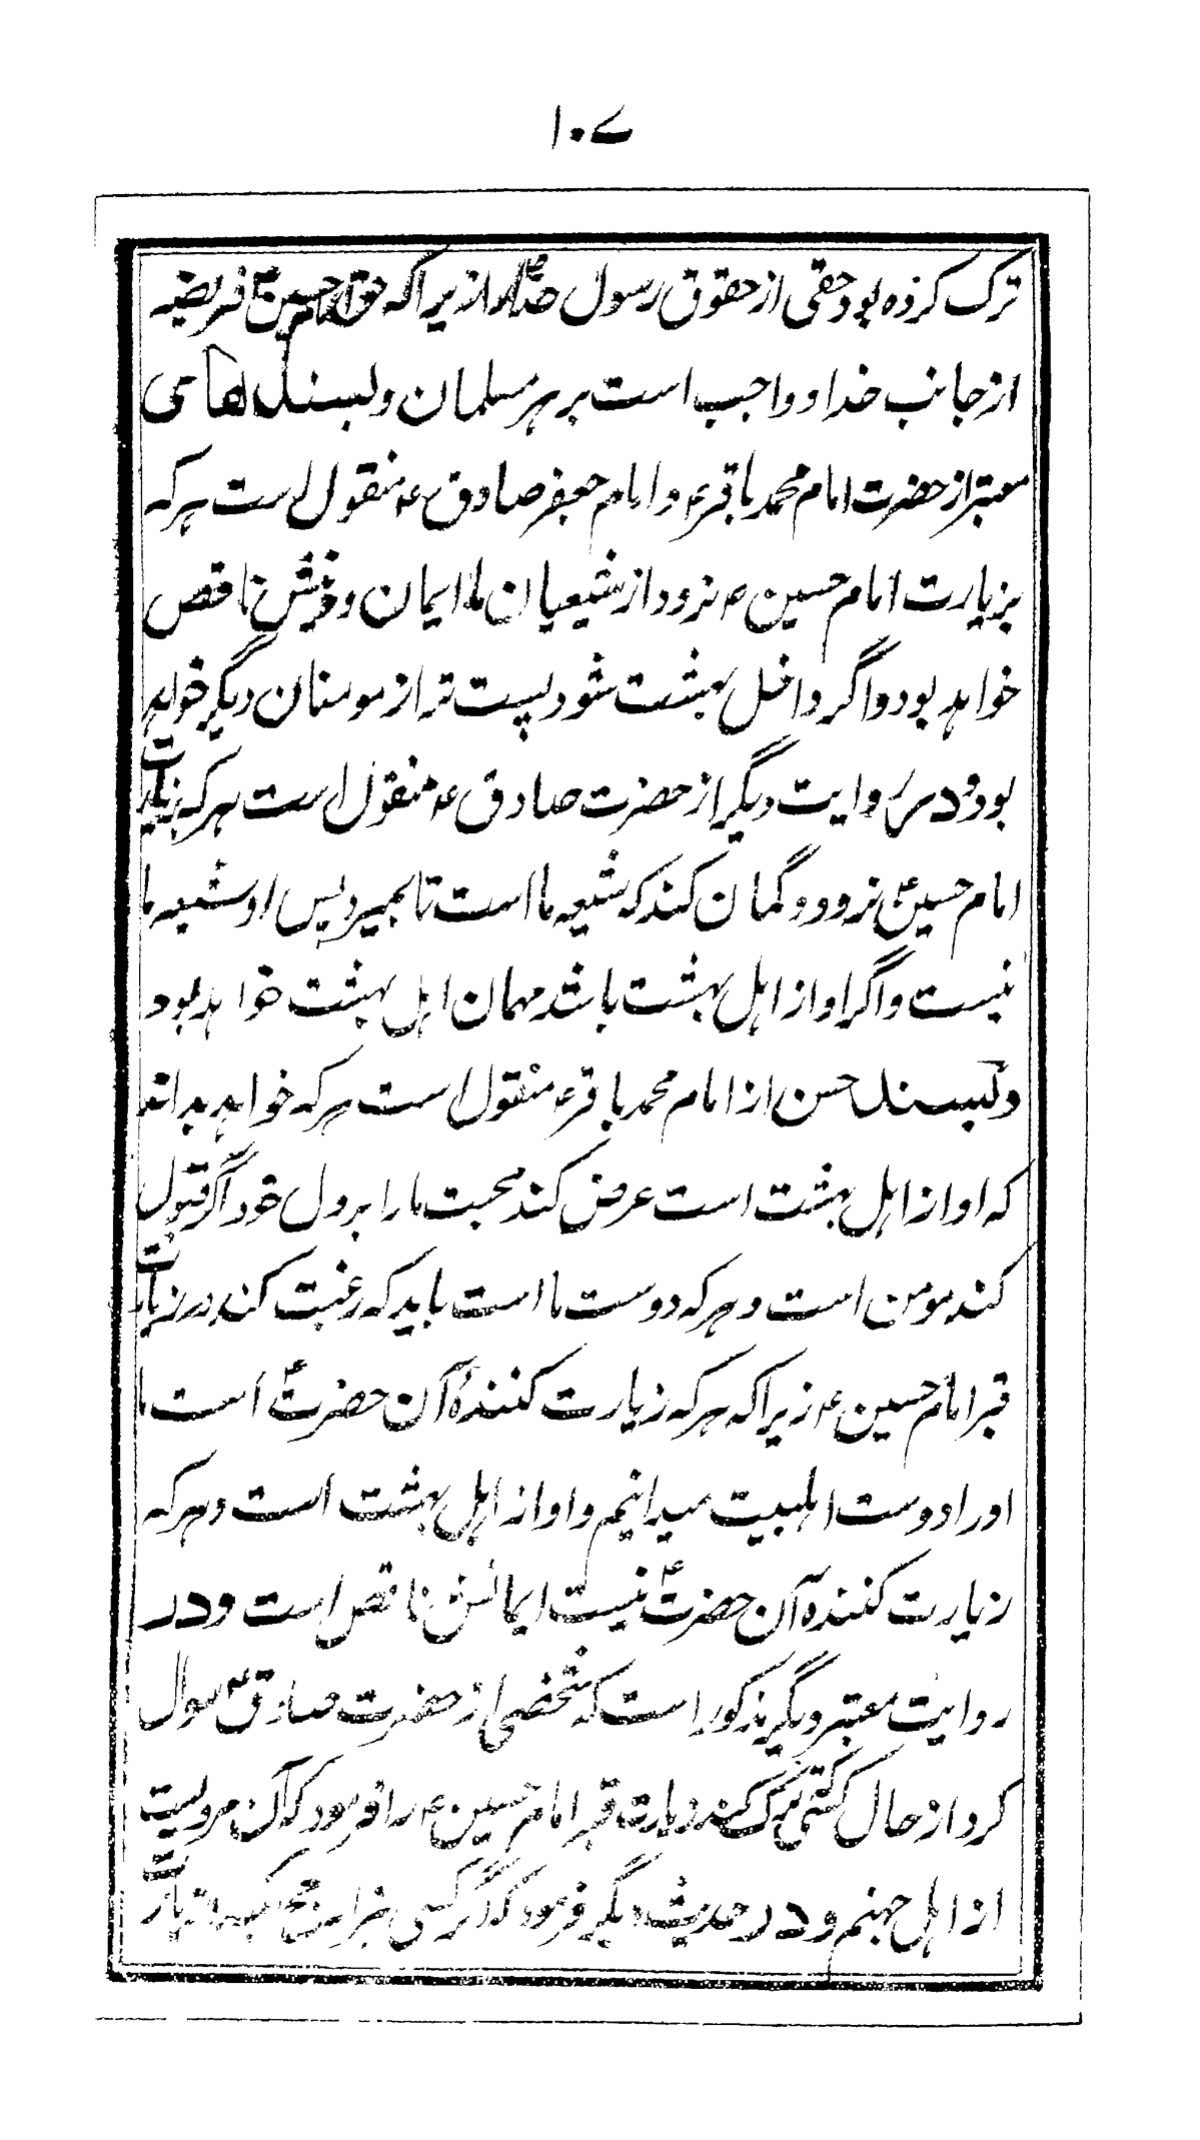 ۱۰۷
ترک کرده بود حقی از حقوق رسول خدا را زیرا که حق امام حسینؑ فریضه
از جانب خدا و واجب است بر هر مسلمان و بسندهامی
معتبر از حضرت امام محمد باقرؑ و امام جعفر صادقؑ منقول است هر که
بزیارت امام حسینؑ نرود از شیعیان ما ایمان و دینش ناقص
خواهد بود و اگر داخل بهشت شود پست تر از مومنان دیگر خواهد
بود و در روایت دیگر از حضرت صادقؑ منقول است هر که بزیارت
امام حسینؑ نرود و گمان کند که شیعه ما است تا بمیرد پس او شیعه ما
نیست و اگر او از اهل بهشت باشد مهمان اهل بهشت خواهد بود
و بسند حسن از امام محمد باقرؑ منقول است هر که خواهد بداند
که او از اهل بهشت است عرض کند محبت ما را بر دل خود اگر قبول
کند مومن است و هر که دوست ما است باید که رغبت کند در زیارت
قبر امام حسینؑ زیرا که هر که زیارت کنندهٔ آن حضرتؑ است ما
او را دوست اهلبیت میدانیم و او از اهل بهشت است و هر که
زیارت کننده آن حضرتؑ نیست ایمانش ناقص است و در
روایت معتبر دیگر مذکور است که شخصی از حضرت صادقؑ سوال
کرد از حال کسی ترک کند زیارت قبر امام حسینؑ را فرمود که آن مردیست
از اهل جهنم و در حدیث دیگر فرمود که اگر کسی هزار حج بکند و زیارت